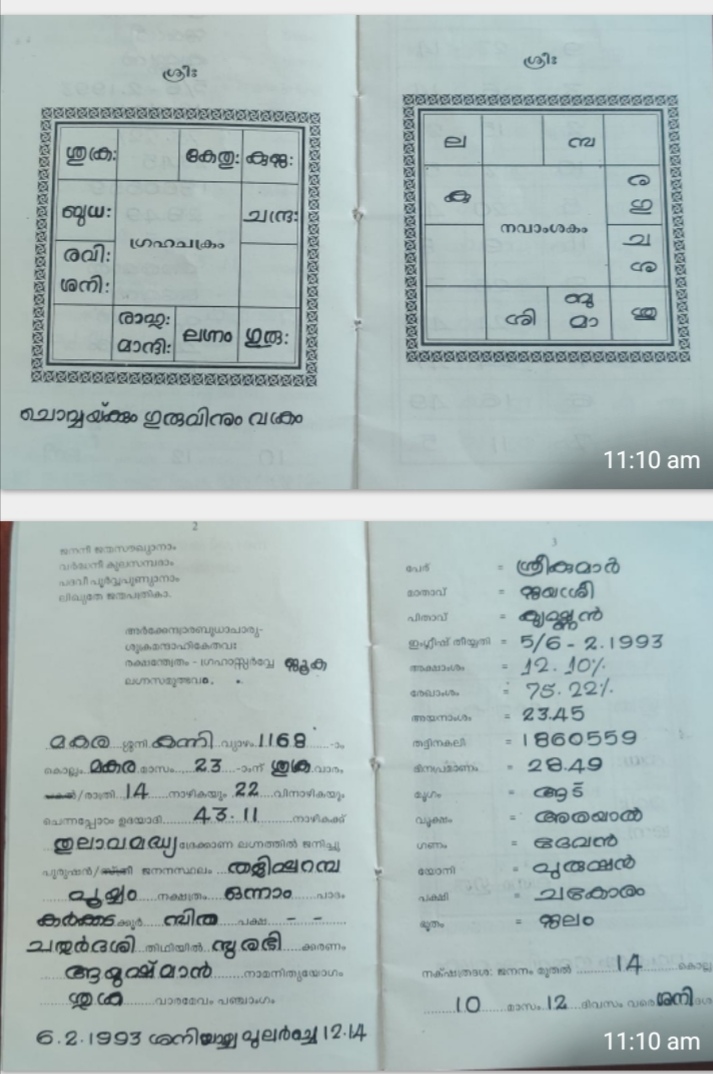 ശ്രീഃ
ശുക്ര: കേതു: കുജ:
ബുധ: ചന്ദ്ര:
ഗ്രഹചക്രം
രവി:
ശനി:
രാഹു: ലഗ്നം ഗുരു:
മാന്ദി:
ചൊവ്വയ്ക്കും ഗുരുവിനും വക്രം
ശ്രീഃ
ല
കു
നവാംശകം
ച
ബു
മാ
11:10 am
2
ജനനീ ജന്മസൗഖ്യാനാം
വർദ്ധനീ കുലസമ്പദാം
പദവീ പൂർവ്വപുണ്യാനാം
ലിഖ്യതേ ജന്മപത്രികാ.
മകര ശനി കന്നി വ്യാഴം 1168 -ാം
കൊല്ലം മകര മാസം 23 -ാംന് ശുക്ര വാരം,
രാത്രി 14 നാഴികയും 22 വിനാഴികയും
ചെന്നപ്പോൾ ഉദയാദി 43.11 നാഴികക്ക്
തുലാവമദ്ധ്യ ദ്രേക്കാണ ലഗ്നത്തിൽ ജനിച്ചു
പുരുഷൻ/ ജനനസ്ഥലം തളിപ്പറമ്പ
പൂയ്യം നക്ഷത്രം ഒന്നാം പാദം
കർക്കട ക്കൂർ പക്ഷ - -
ചതുർദശി തിഥിയിൽ സുരഭി കരണം
ആയുഷ്മാൻ നാമനിത്യയോഗം
ശുക്ര വാരമേവം പഞ്ചാംഗം
6.2.1993 ശനിയാഴ്ച പുലർച്ചെ 12.14
3
പേര് = ശ്രീകുമാർ
മാതാവ് = ജയശ്രീ
പിതാവ് =
ഇംഗ്ലീഷ് തീയ്യതി = 5/6 - 2.1993
അക്ഷാംശം = 12. 10%
രേഖാംശം = 75. 22%
അയനാംശം = 23.45
തദ്ദിനകലി = 1860559
ദിനപ്രമാണം = 28.49
മൃഗം = ആട്
വൃക്ഷം = അരയാൽ
ഗണം = ദേവൻ
യോനി = പുരുഷൻ
പക്ഷി = ചകോരം
ഭൂതം = ജലം
നക്ഷത്രദശ: ജനനം മുതൽ 14 കൊല്ല
10 മാസം 12 ദിവസം വരെ ശനി
11:10 am